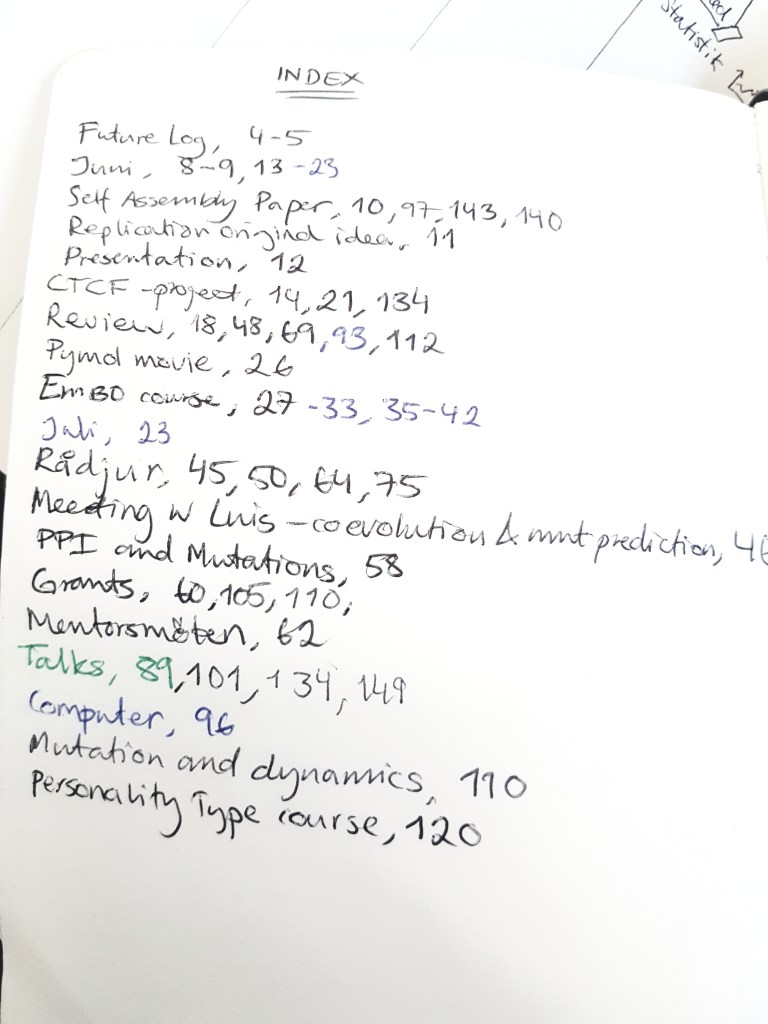 Statistik
INDEX
Future Log, 4-5
Juni, 8-9, 13-23
Self Assembly Paper, 10, 97, 143, 140
Replication original idea, 11
Presentation, 12
CTCF-project, 14, 21, 134
Review, 18, 48, 69, 93, 112
Pymol movie, 26
EMBO course, 27-33, 35-42
Juli, 23
Rådjur, 45, 50, 64, 75
Meeting w Luis - coevolution & mut prediction,
PPI and Mutations, 58
Grants, 60, 105, 110,
Mentorsmöten, 62
Talks, 89, 101, 134, 149
Computer, 96
Mutation and dynamics, 110
Personality Type course, 120